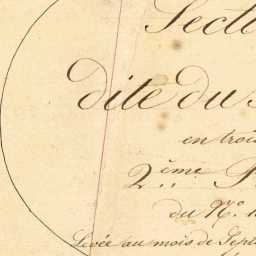 Secti
dite du
en trois
2.ème P
du N.o 1
Levée au mois de Sept